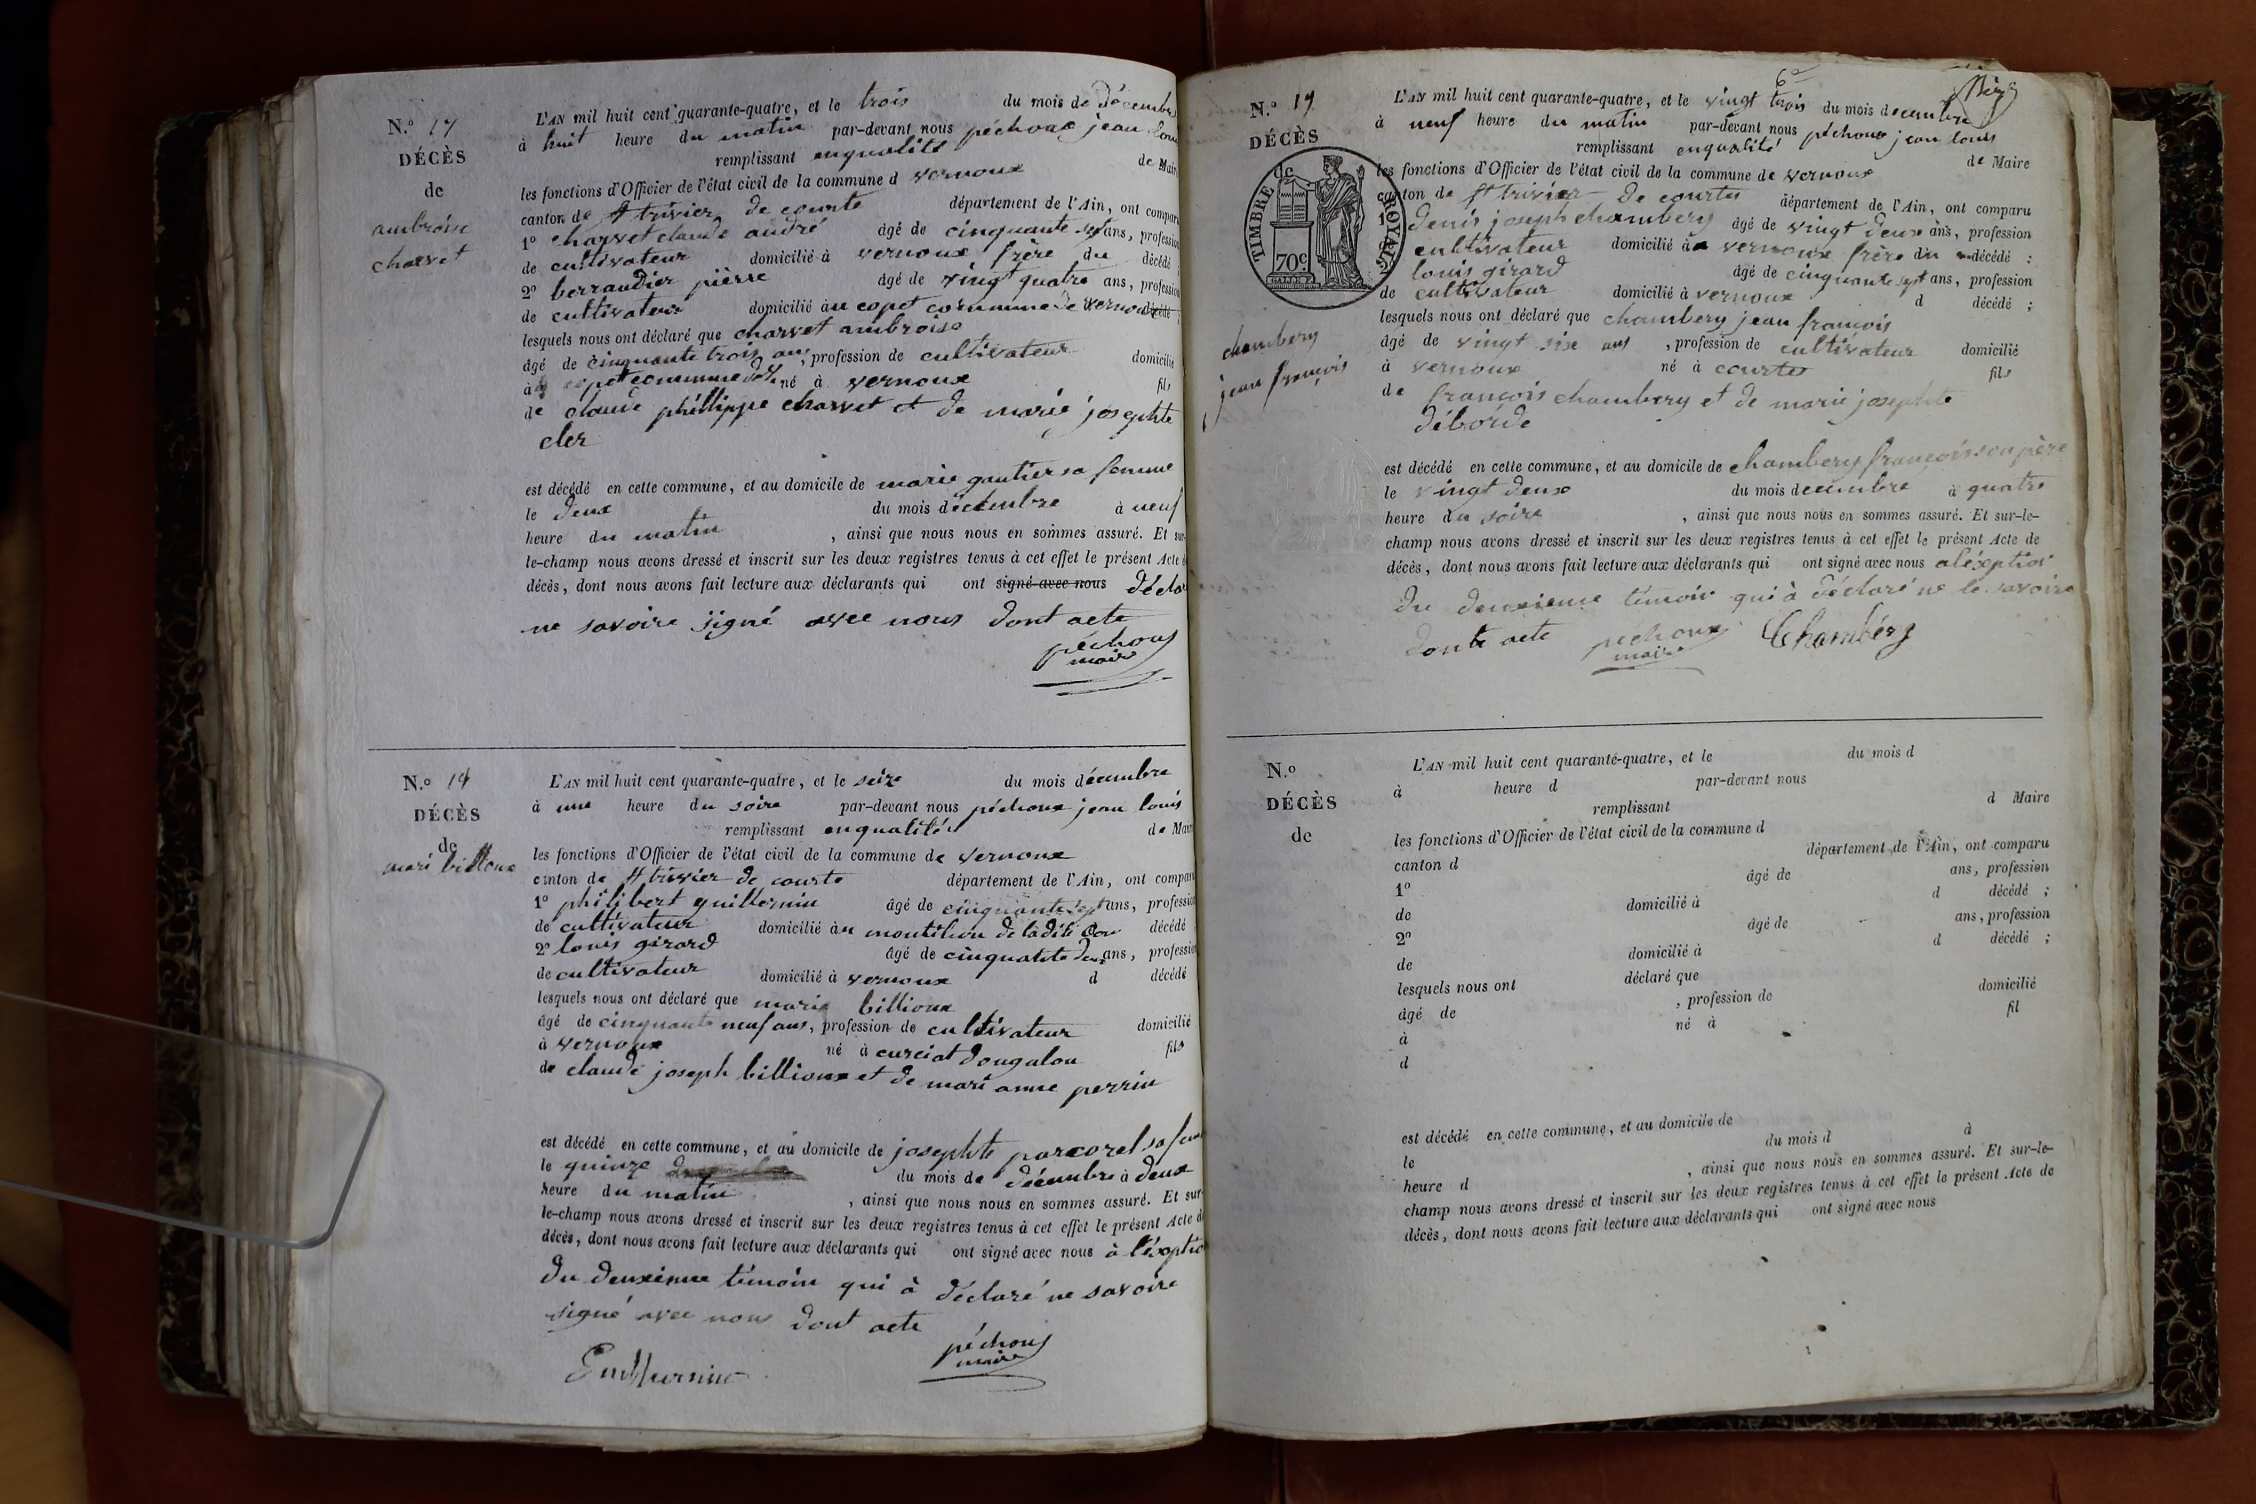 N.o 17
DÉCÈS
de
ambroise
charvet
L'AN mil huit cent quarante-quatre, et le trois du mois de décembre
à huit heure du matin par-devant nous péchoux jean
remplissant enqualité de Maire
les fonctions d'Officier de l'état civil de la commune d vernoux
canton de st trivier de courte département de l'Ain, ont comparu
1o charvet claude andré âgé de cinquante ans, profession
de cultivateur domicilié à vernoux frère du décédé ;
2o berraudier pièrre âgé de vingt quatre ans, profession
de cultivateur domicilié au copet commune de vernoux décédé ;
lesquels nous ont déclaré que charvet ambroise
âgé de cinquante trois ans, profession de cultivateur domicilié
à copet commune né à vernoux fils
de claude phillippe charvet et de marie josephte
cler
est décédé en cette commune, et au domicile de marie gautier sa femme
le deux du mois décembre à neuf
heure du matin , ainsi que nous nous en sommes assuré. Et sur-
le-champ nous avons dressé et inscrit sur les deux registres tenus à cet effet le présent Acte
décès, dont nous avons fait lecture aux déclarants qui ont signé avec nous décla
ne savoire signé avec nous dont acte
péchoux
maire
N.o 18
DÉCÈS
de
mari billoux
L'AN mil huit cent quarante-quatre, et le seize du mois décembre
à une heure du soire par-devant nous péchoux jean louis
remplissant enqualité de Maire
les fonctions d'Officier de l'état civil de la commune de vernoux
canton de st trivier de courte département de l'Ain, ont comparu
1o philibert guillermin âgé de cinquante sept ans, profession
de cultivateur domicilié au montilion de ladite Com décédé
2o louis girard âgé de cinquante deux ans, profession
de cultivateur domicilié à vernoux d décédé
lesquels nous ont déclaré que marie billioux
âgé de cinquante neuf ans, profession de cultivateur domicilié
à vernoux né à curciat dongalon fils
de claude joseph billioux et de mari anne perrin
est décédé en cette commune, et au domicile de josephte parcorel sa fam
le quinze du mois de décembre à deux
heure du matin , ainsi que nous nous en sommes assuré. Et sur-
le-champ nous avons dressé et inscrit sur les deux registres tenus à cet effet le présent Acte d
décès, dont nous avons fait lecture aux déclarants qui ont signé avec nous à l'éxeptio
du deuxieme témoin qui à déclaré ne savoire
signé avec nous dont acte
Guillermin
péchoux
maire
6e
N.o 19
DÉCÈS
de
TIMBRE ROYAL
70c
chambery
jean françois
L'AN mil huit cent quarante-quatre, et le vingt trois du mois decembre
à neuf heure du matin par-devant nous péchoux jean louis
remplissant enqualité de Maire
les fonctions d'Officier de l'état civil de la commune de vernoux
canton de st trivier de courtes département de l'Ain, ont comparu
1o denis joseph chambery âgé de vingt deux ans, profession
cultivateur domicilié à vernoux frère du décédé ;
louis girard âgé de cinquante sept ans, profession
de cultivateur domicilié à vernoux d décédé ;
lesquels nous ont déclaré que chambery jean françois
âgé de vingt six ans , profession de cultivateur domicilié
à vernoux né à courtes fils
de françois chambery et de marie josephte
débordé
est décédé en cette commune, et au domicile de chambery françois son père
le vingt deux du mois decembre à quatre
heure du soire , ainsi que nous nous en sommes assuré. Et sur-le-
champ nous avons dressé et inscrit sur les deux registres tenus à cet effet le présent Acte de
décès, dont nous avons fait lecture aux déclarants qui ont signé avec nous aléxeption
du deuxieme témoin qui à déclaré ne le savoire
dont acte péchoux Chambéry
maire
N.o
DÉCÈS
de
L'AN mil huit cent quarante-quatre, et le du mois d
à heure d par-devant nous
remplissant d Maire
les fonctions d'Officier de l'état civil de la commune d
canton d département de l'Ain, ont comparu
1o âgé de ans, profession
de domicilié à d décédé ;
2o âgé de ans, profession
de domicilié à d décédé ;
lesquels nous ont déclaré que
âgé de , profession de domicilié
à né à fil
d
est décédé en cette commune, et au domicile de
le du mois d à
heure d , ainsi que nous nous en sommes assuré. Et sur-le-
champ nous avons dressé et inscrit sur les deux registres tenus à cet effet le présent Acte de
décès, dont nous avons fait lecture aux déclarants qui ont signé avec nous